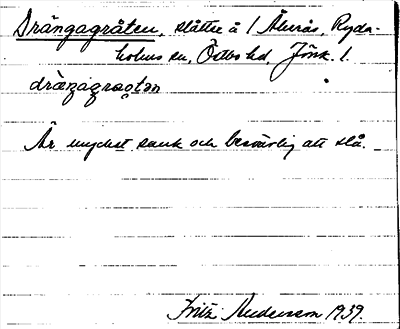 Drängagråten, slåtter å 1 Åminås, Ryda-
holms sn, Östbo hd, Jönk. l.
drängagråten
Är mycket sank och besvärlig att slå.
Fritz Anderson 1939.